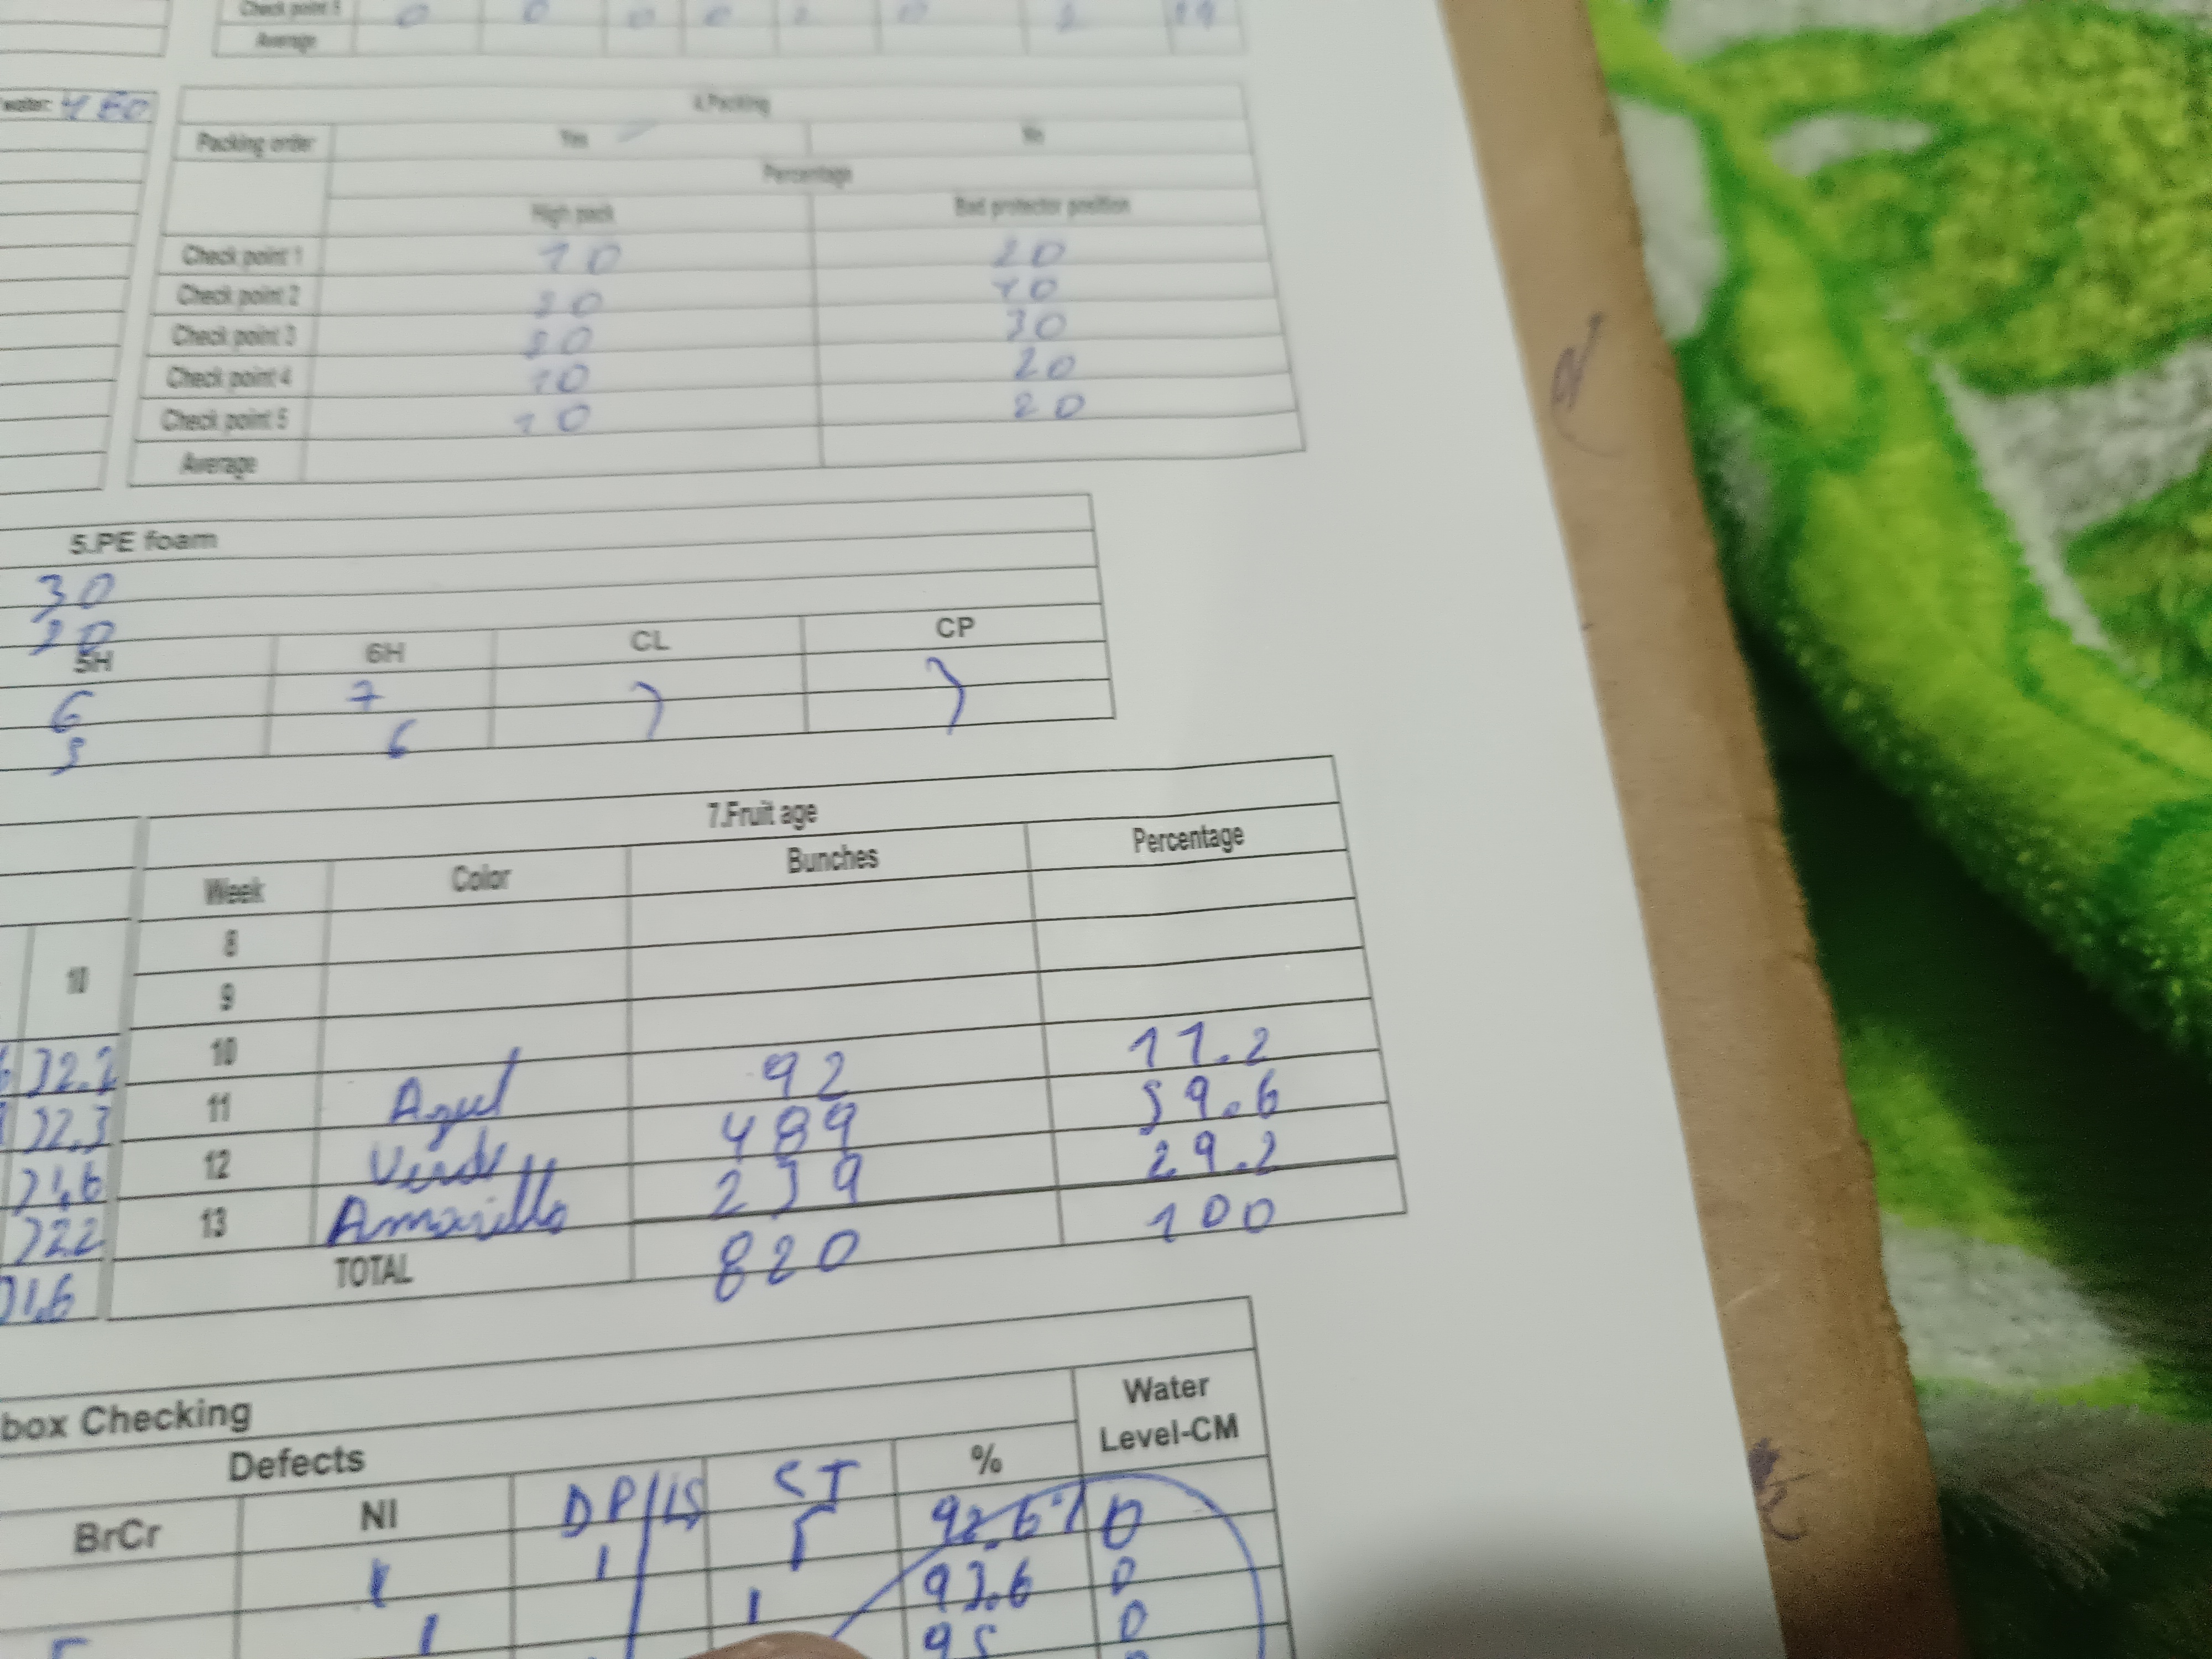 Check point 5 0 0 0 0
Average
water: 480
4.Packing
Packing order Yes No
Percentage
High pack Bad protector position
Check point 1 10 20
Check point 2 20 10
Check point 3 20 30
Check point 4 10 20
Check point 5 10 20
Average
5.PE foam
30
20
5H 6H CL CP
6 7
5 6
7.Fruit age
Week Color Bunches Percentage
8
10
9
10
32.2
11 Azul 92 11.2
32.3
12 Verde 489 59.6
31.6
13 Amarillo 239 29.2
322
TOTAL 820 100
31.6
box Checking
Defects % Water Level-CM
BrCr NI DP/LS ST
92.6% 0
1 1 93.6 0
1 1 95 0